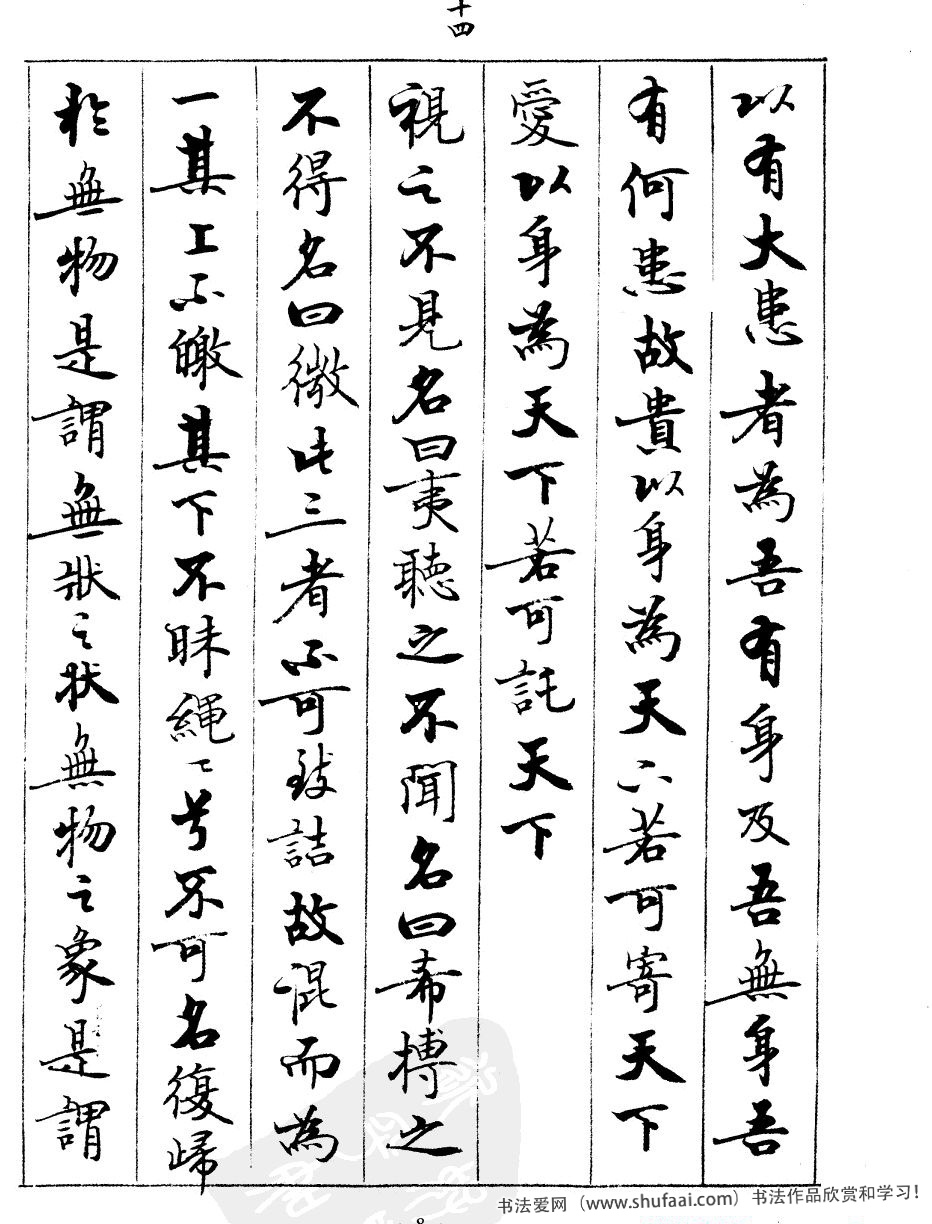 十四
以有大患者為吾有身及吾無身吾
有何患故貴以身為天下若可寄天下
愛以身為天下若可託天下
視之不見名曰夷聽之不聞名曰希搏之
不得名曰微此三者不可致詰故混而為
一其上不皦其下不昧繩〻兮不可名復歸
於無物是謂無狀之狀無物之象是謂
书法爱网（www.shufaai.com）书法作品欣赏和学习！
8